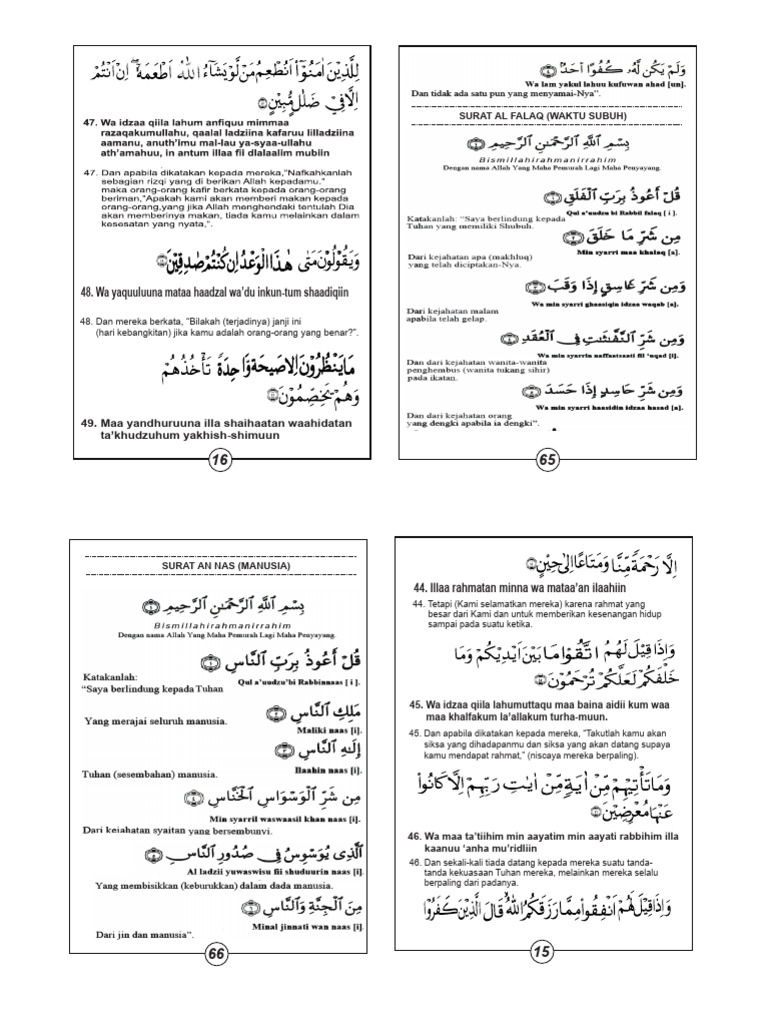 لِلَّذِيْنَ اٰمَنُوْٓا اَنُطْعِمُ مَنْ لَّوْ يَشَاۤءُ اللّٰهُ اَطْعَمَهٗٓ ۖ اِنْ اَنْتُمْ
اِلَّا فِيْ ضَلٰلٍ مُّبِيْنٍ
47. Wa idzaa qiila lahum anfiquu mimmaa
razaqakumullahu, qaalal ladziina kafaruu lilladziina
aamanu, anuth'imu mal-lau ya-syaa-ullahu
ath'amahuu, in antum illaa fii dlalaalim mubiin
47. Dan apabila dikatakan kepada mereka,"Nafkahkanlah
sebagian rizqi yang di berikan Allah kepadamu."
maka orang-orang kafir berkata kepada orang-orang
beriman,"Apakah kami akan memberi makan kepada
orang-orang,yang jika Allah menghendaki tentulah Dia
akan memberinya makan, tiada kamu melainkan dalam
kesesatan yang nyata,".
وَيَقُوْلُوْنَ مَتٰى هٰذَا الْوَعْدُ اِنْ كُنْتُمْ صٰدِقِيْنَ
48. Wa yaquuluuna mataa haadzal wa'du inkun-tum shaadiqiin
48. Dan mereka berkata, "Bilakah (terjadinya) janji ini
(hari kebangkitan) jika kamu adalah orang-orang yang benar?".
مَا يَنْظُرُوْنَ اِلَّا صَيْحَةً وَّاحِدَةً تَأْخُذُهُمْ
وَهُمْ يَخِصِّمُوْنَ
49. Maa yandhuruuna illa shaihaatan waahidatan
ta'khudzuhum yakhish-shimuun
16
وَلَمْ يَكُن لَّهُۥ كُفُوًا أَحَدٌۢ
Wa lam yakul lahuu kufuwan ahad [un].
Dan tidak ada satu pun yang menyamai-Nya".
SURAT AL FALAQ (WAKTU SUBUH)
بِسْمِ اللَّهِ الرَّحْمَٰنِ الرَّحِيمِ
Bismillahirahmanirrahim
Dengan nama Allah Yang Maha Pemurah Lagi Maha Penyayang.
قُلْ أَعُوذُ بِرَبِّ الْفَلَقِ
Qul a'uudzu bi Rabbil falaq [ i ].
Katakanlah: "Saya berlindung kepada
Tuhan yang memiliki Shubuh.
مِن شَرِّ مَا خَلَقَ
Min syarri maa khalaq [a].
Dari kejahatan apa (makhluq)
yang telah diciptakan-Nya.
وَمِن شَرِّ غَاسِقٍ إِذَا وَقَبَ
Wa min syarri ghaasiqin idzaa waqab [a].
Dari kejahatan malam
apabila telah gelap.
وَمِن شَرِّ النَّفَّٰثَٰتِ فِى الْعُقَدِ
Wa min syarrin naffaatsaati fil 'uqad [i].
Dan dari kejahatan wanita-wanita
penghembus (wanita tukang sihir)
pada ikatan.
وَمِن شَرِّ حَاسِدٍ إِذَا حَسَدَ
Wa min syarri haasidin idzaa hasad [a].
Dan dari kejahatan orang
yang dengki apabila ia dengki".
65
SURAT AN NAS (MANUSIA)
بِسْمِ اللَّهِ الرَّحْمَٰنِ الرَّحِيمِ
Bismillahirahmanirrahim
Dengan nama Allah Yang Maha Pemurah Lagi Maha Penyayang.
قُلْ أَعُوذُ بِرَبِّ النَّاسِ
Katakanlah:
Qul a'uudzu'bi Rabbinnaas [ i ].
"Saya berlindung kepada Tuhan
مَلِكِ النَّاسِ
Yang merajai seluruh manusia.
Maliki naas [i].
إِلَٰهِ النَّاسِ
Ilaahin naas [i].
Tuhan (sesembahan) manusia.
مِن شَرِّ الْوَسْوَاسِ الْخَنَّاسِ
Min syarril waswaasil khan naas [i].
Dari kejahatan syaitan yang bersembunyi.
الَّذِى يُوَسْوِسُ فِى صُدُورِ النَّاسِ
Al ladzii yuwaswisu fii shuduurin naas [i].
Yang membisikkan (keburukkan) dalam dada manusia.
مِنَ الْجِنَّةِ وَالنَّاسِ
Minal jinnati wan naas [i].
Dari jin dan manusia".
66
اِلَّا رَحْمَةً مِّنَّا وَمَتَاعًا اِلٰى حِيْنٍ
44. Illaa rahmatan minna wa mataa'an ilaahiin
44. Tetapi (Kami selamatkan mereka) karena rahmat yang
besar dari Kami dan untuk memberikan kesenangan hidup
sampai pada suatu ketika.
وَاِذَا قِيْلَ لَهُمُ اتَّقُوْا مَا بَيْنَ اَيْدِيْكُمْ وَمَا
خَلْفَكُمْ لَعَلَّكُمْ تُرْحَمُوْنَ
45. Wa idzaa qiila lahumuttaqu maa baina aidii kum waa
maa khalfakum la'allakum turha-muun.
45. Dan apabila dikatakan kepada mereka, "Takutlah kamu akan
siksa yang dihadapanmu dan siksa yang akan datang supaya
kamu mendapat rahmat," (niscaya mereka berpaling).
وَمَا تَأْتِيْهِمْ مِّنْ اٰيَةٍ مِّنْ اٰيٰتِ رَبِّهِمْ اِلَّا كَانُوْا
عَنْهَا مُعْرِضِيْنَ
46. Wa maa ta'tiihim min aayatim min aayati rabbihim illa
kaanuu 'anha mu'ridliin
46. Dan sekali-kali tiada datang kepada mereka suatu tanda-
tanda kekuasaan Tuhan mereka, melainkan mereka selalu
berpaling dari padanya.
وَاِذَا قِيْلَ لَهُمْ اَنْفِقُوْا مِمَّا رَزَقَكُمُ اللّٰهُ قَالَ الَّذِيْنَ كَفَرُوْا
15